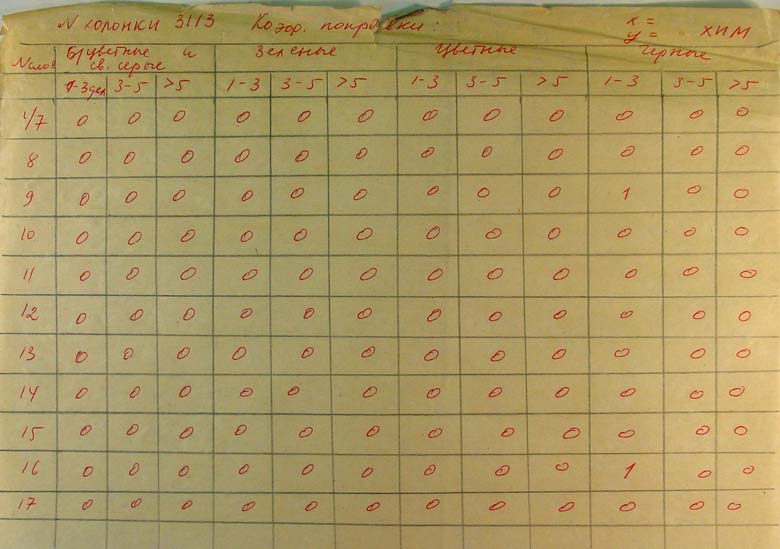 N колонки 3113 Коэф. поправки: x =
y = ХИМ
N слоя Б/цветные и Зеленые Цветные Черные
св. серые
1-3 3-5 >5 1-3 3-5 >5 1-3 3-5 >5 1-3 3-5 >5
1/7 0 0 0 0 0 0 0 0 0 0 0 0
8 0 0 0 0 0 0 0 0 0 0 0 0
9 0 0 0 0 0 0 0 0 0 1 0 0
10 0 0 0 0 0 0 0 0 0 0 0 0
11 0 0 0 0 0 0 0 0 0 0 0 0
12 0 0 0 0 0 0 0 0 0 0 0 0
13 0 0 0 0 0 0 0 0 0 0 0 0
14 0 0 0 0 0 0 0 0 0 0 0 0
15 0 0 0 0 0 0 0 0 0 0 0 0
16 0 0 0 0 0 0 0 0 0 1 0 0
17 0 0 0 0 0 0 0 0 0 0 0 0